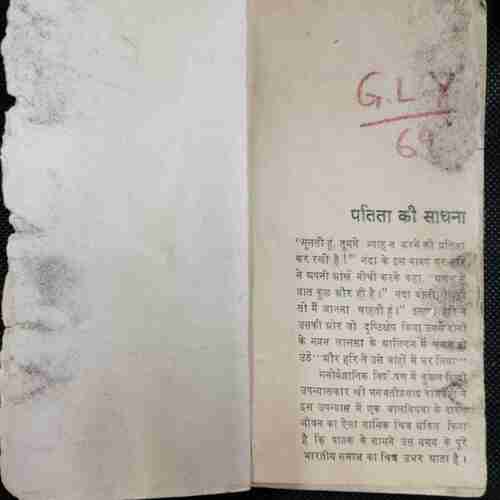 G.L.Y
69
पतिता की साधना
"सुनती हूं, तुमने ब्याह न करने की प्रतिज्ञा
कर रखी है!" नंदा के इस वाक्य पर हरि
ने अपनी आंखें नीची करके कहा, "असल में
बात कुछ और ही है।" नंदा बोली, "वही
तो मैं जानना चाहती हूं।" हरि ने
उसकी ओर जो दृष्टिक्षेप किया उसमें दोनों
के नयन लालसा के आलिंगन में
उठे···और हरि ने उसे बांहों में भर लिया···
मनोवैज्ञानिक विश्लेषण में कुशल
उपन्यासकार श्री भगवतीप्रसाद वाजपेयी ने
इस उपन्यास में एक बालविधवा के
जीवन का ऐसा मार्मिक चित्र अंकित किया
है कि पाठक के सामने उस समय के पूरे
भारतीय समाज का चित्र उभर आता है।